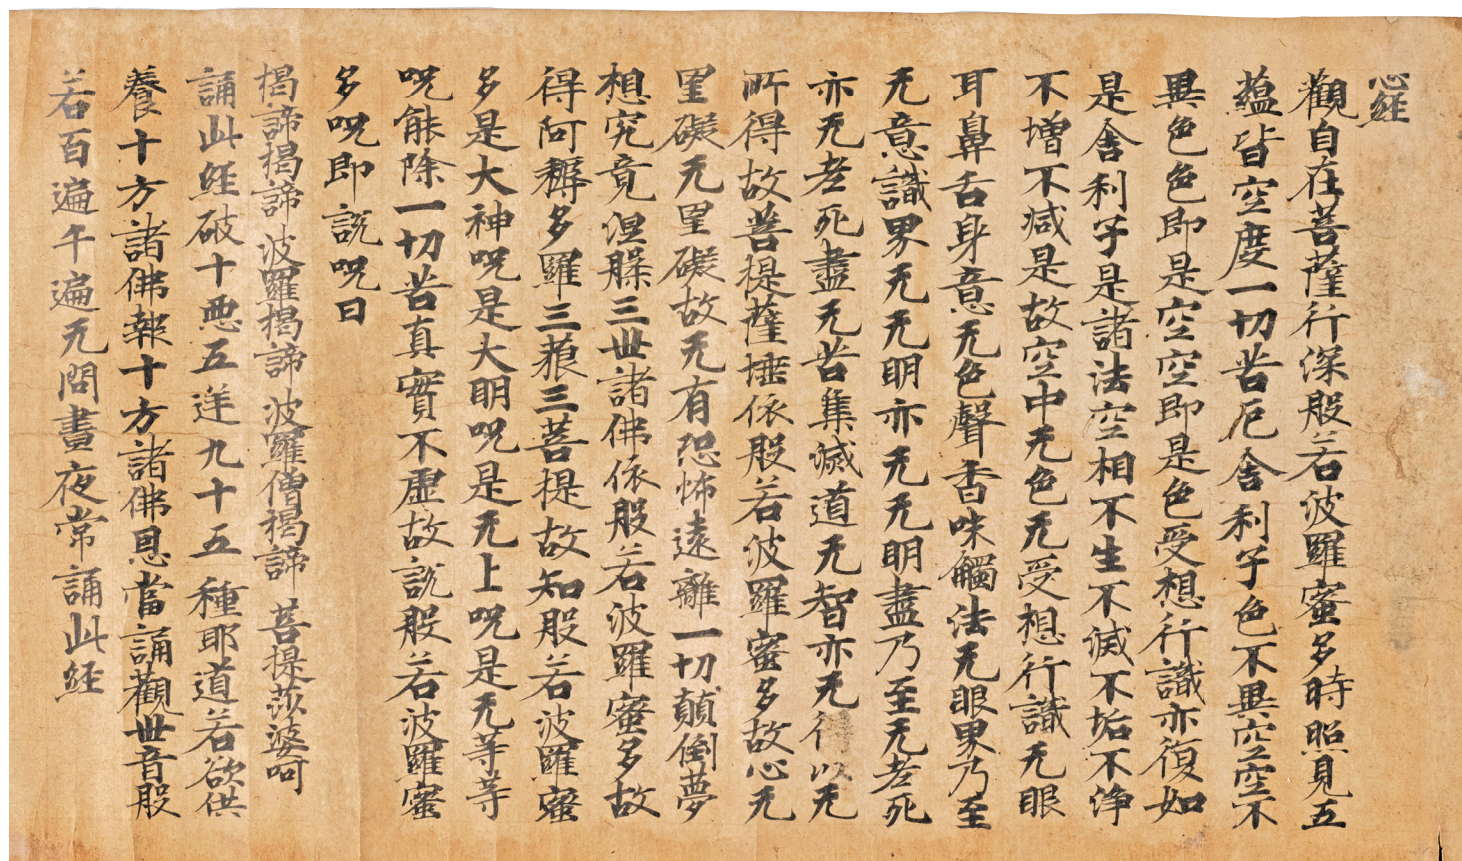 心經
觀自在菩薩行深般若波羅蜜多時照見五
蘊皆空度一切苦厄舍利子色不異空空不
異色色即是空空即是色受想行識亦復如
是舍利子是諸法空相不生不滅不垢不淨
不增不減是故空中无色无受想行識无眼
耳鼻舌身意无色聲香味觸法无眼界乃至
无意識界无无明亦无无明盡乃至无老死
亦无老死盡无苦集滅道无智亦无得以无
所得故菩提薩埵依般若波羅蜜多故心无
罣礙无罣礙故无有恐怖遠離一切顛倒夢
想究竟涅槃三世諸佛依般若波羅蜜多故
得阿耨多羅三藐三菩提故知般若波羅蜜
多是大神呪是大明呪是无上呪是无等等
呪能除一切苦真實不虛故說般若波羅蜜
多呪即說呪曰
揭諦揭諦 波羅揭諦 波羅僧揭諦 菩提莎婆呵
誦此經破十惡五逆九十五種耶道若欲供
養十方諸佛報十方諸佛恩當誦觀世音般
若百遍千遍无問晝夜常誦此經